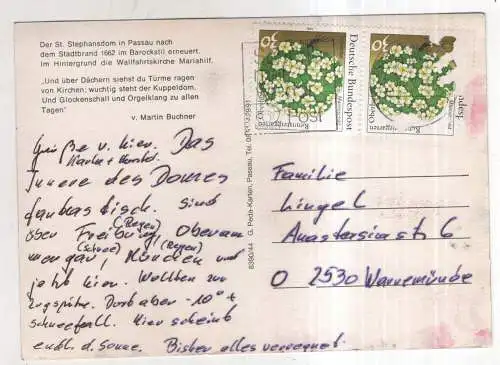 Der St. Stephansdom in Passau nach
dem Stadtbrand 1662 im Barockstil erneuert.
Im Hintergrund die Wallfahrtskirche Mariahilf.
„Und über Dächern siehst du Türme ragen
von Kirchen; wuchtig steht der Kuppeldom.
Und Glockenschall und Orgelklang zu allen
Tagen"
v. Martin Buchner
Grüße v. hier. Das
Innere des Domes
fantastisch. Sind
über Freiburg, Oberam
(Regen)
mergau, München und
(Schnee) (Regen)
jetzt hier. Wollten zur
Zugspitze. Dort aber -10° +
Schneefall. Hier scheint
endl. d. Sonne. Bisher alles verregnet.
8390/44 G. Peda-Karten, Passau, Tel.
30
Deutsche Bundespost
30
Rennsteiggarten
Oberhof
Familie
Lingel
Anastasiastr 6
O 2530 Warnemünde